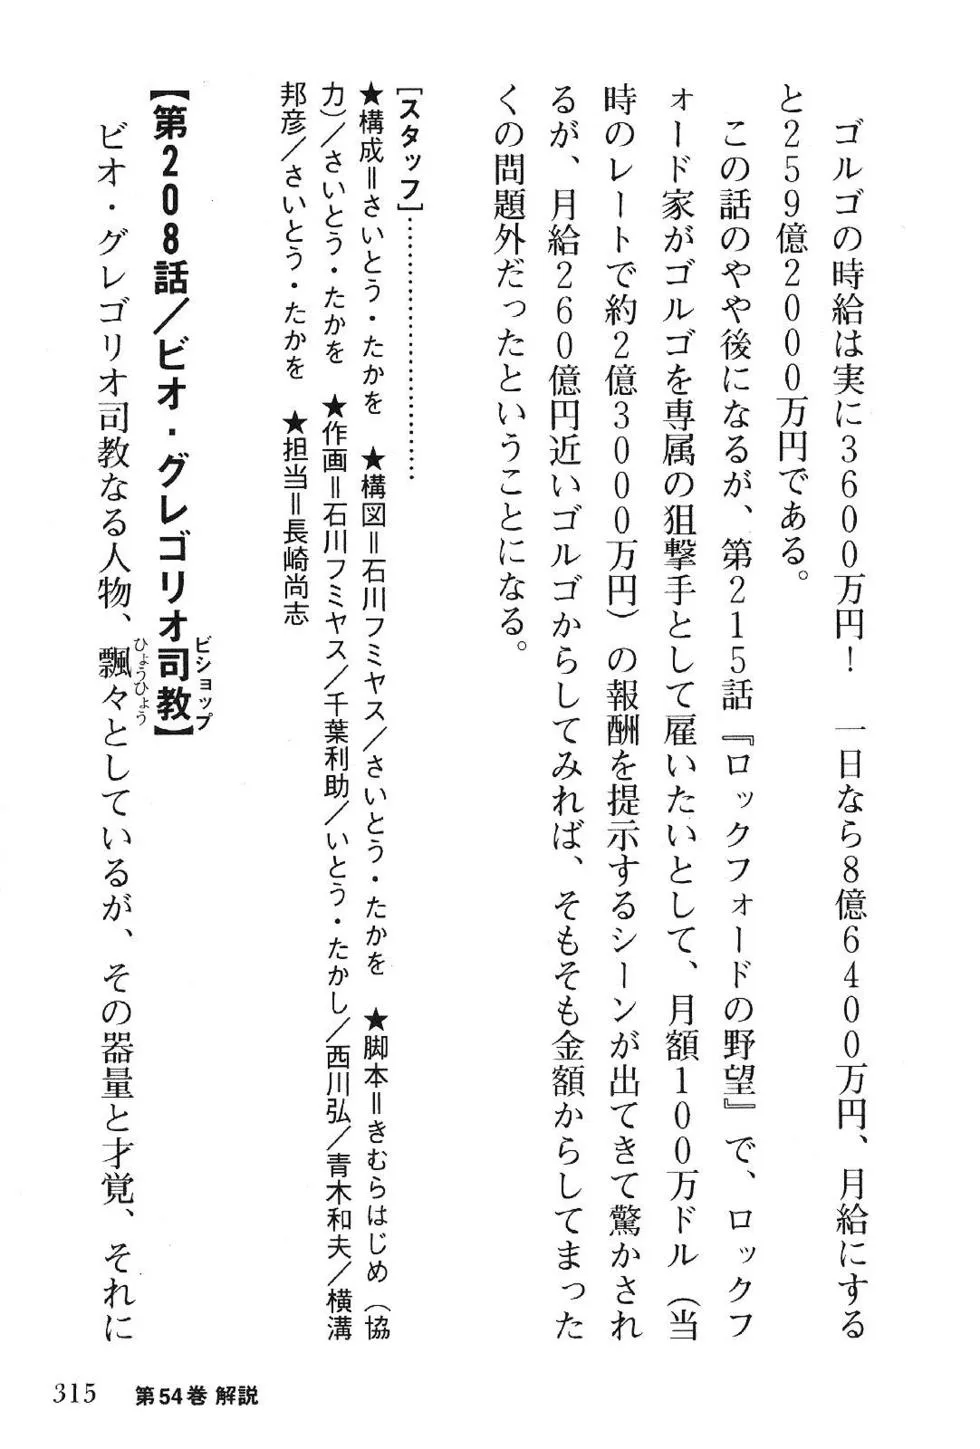 ゴルゴの時給は実に3600万円！　一日なら8億6400万円、月給にする
と259億2000万円である。
この話のやや後になるが、第215話『ロックフォードの野望』で、ロックフ
ォード家がゴルゴを専属の狙撃手として雇いたいとして、月額100万ドル（当
時のレートで約2億3000万円）の報酬を提示するシーンが出てきて驚かされ
るが、月給260億円近いゴルゴからしてみれば、そもそも金額からしてまった
くの問題外だったということになる。
［スタッフ］…………………………
★構成＝さいとう・たかを　★構図＝石川フミヤス／さいとう・たかを　★脚本＝きむらはじめ（協
力）／さいとう・たかを　★作画＝石川フミヤス／千葉利助／いとう・たかし／西川弘／青木和夫／横溝
邦彦／さいとう・たかを　★担当＝長崎尚志
ビショップ
【第208話／ビオ・グレゴリオ司教】
ひょうひょう
ビオ・グレゴリオ司教なる人物、飄々としているが、その器量と才覚、それに
315　第54巻 解説